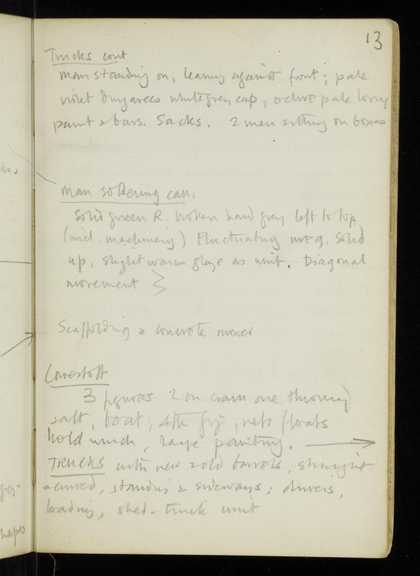 13
Trucks cont
man standing on, leaning against front; pale
violet dungarees white grey cap, ochre pale lorry
paint & bars. Sacks. 2 men sitting on boxes
man soldering can.
Solid green R. broken hard gray left to top
(incl. machinery) Fluctuating Solid
up, slight warm glaze as unit. Diagonal
movement
Scaffolding & concrete mixer
Lowestoft
3 figures 2 on crain one throwing
salt, boat, 4th fig, nets floats
hold winch, large painting.
TRUCKS with new & old barrels, straight
& curved, standing & sideways; drivers,
loading, shed - truck unit